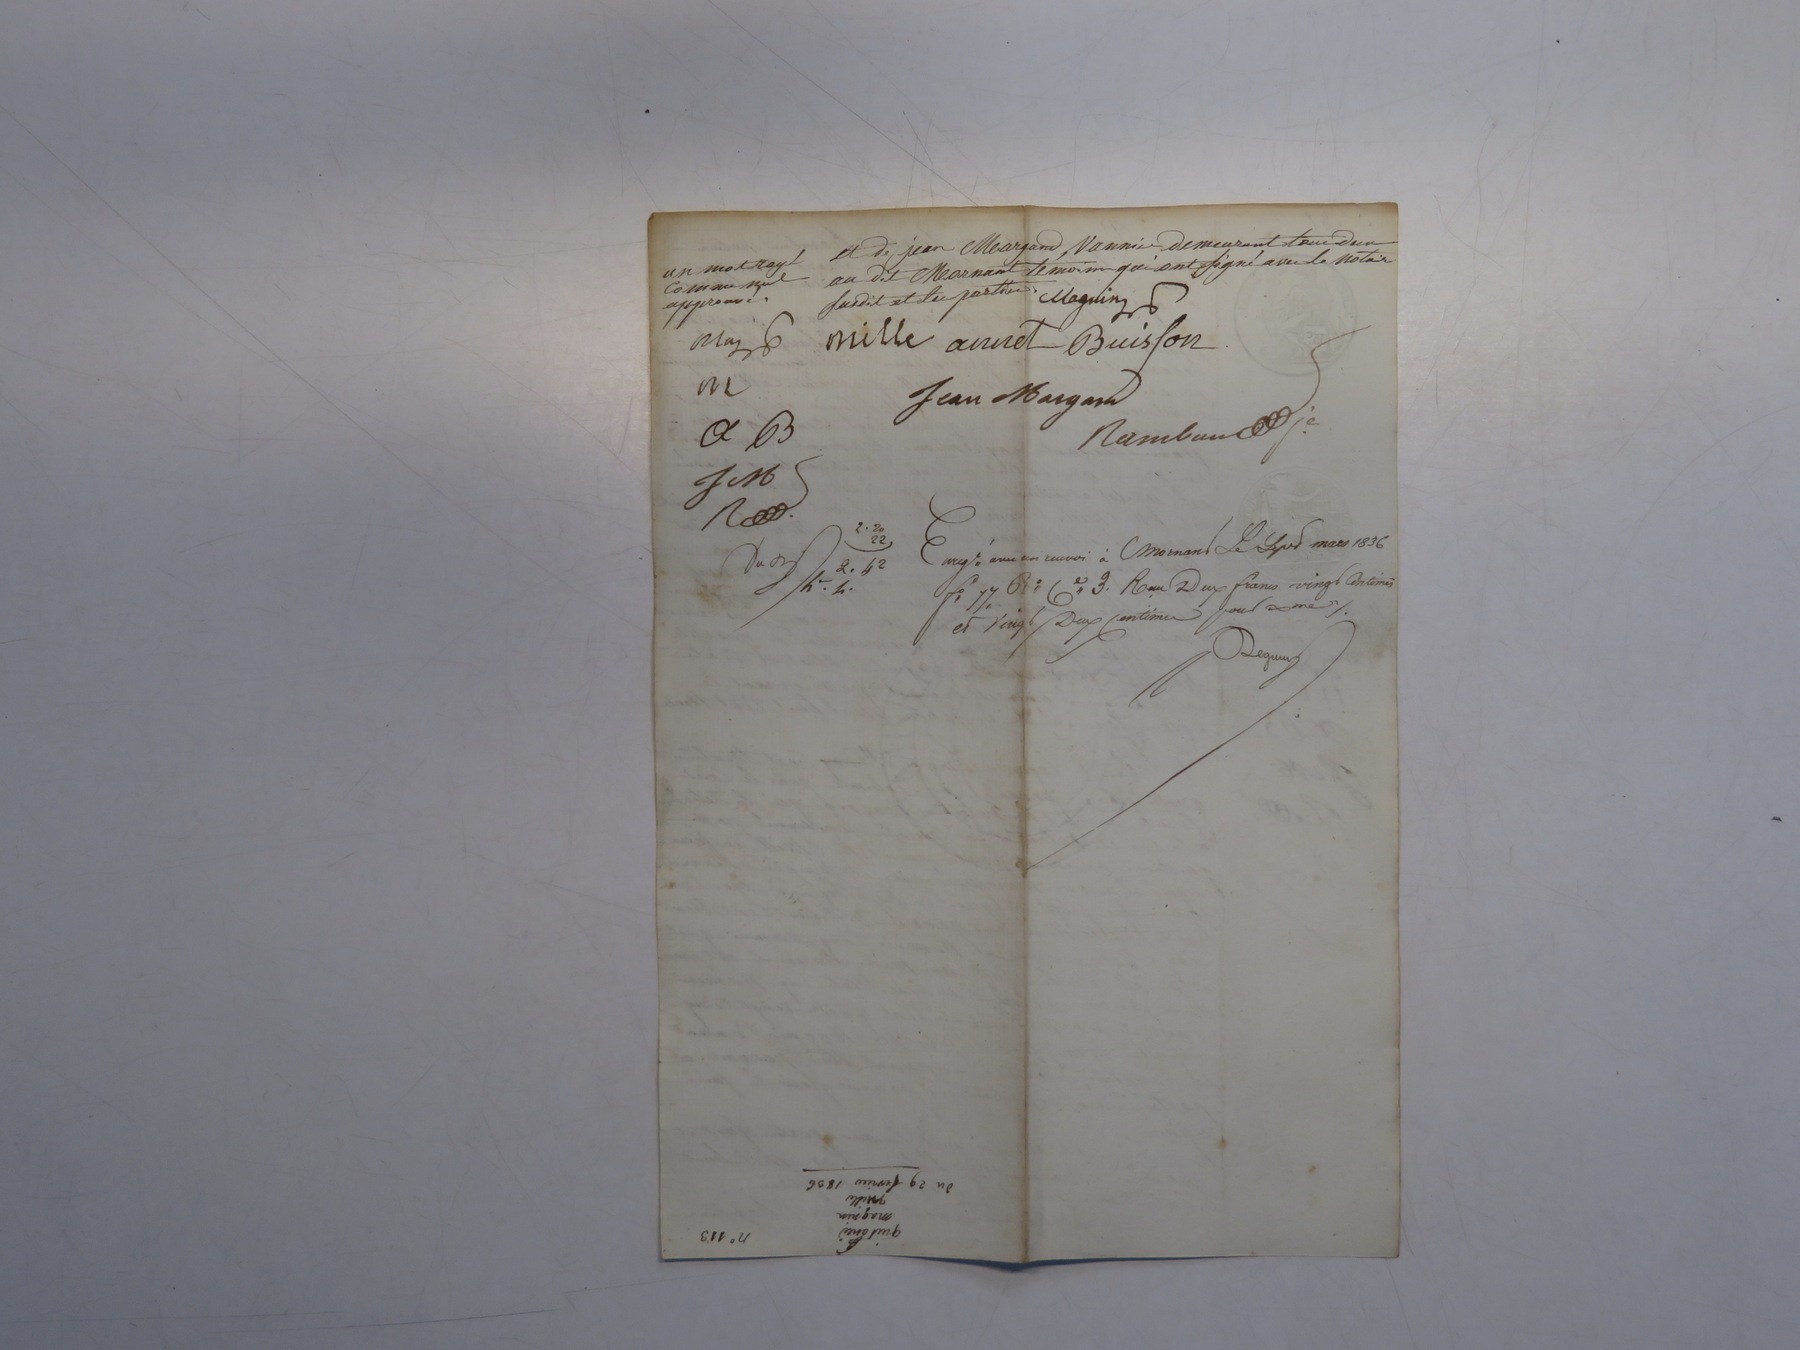 et de jean Margand, Vannier demeurant tous deux
au dit Mornant temoins qui ont signé avec le notaire
susdit et les parties. Magnin
un mot rayé
comme nul
approuvé.
Mag
mille annet Buisson
M
Jean Margand
a B
Rambaud je
J M
R
2. 20
22
2. 42
Enregé à Mornant Le sept mars 1836
fo 77 Ro Ce 3. Reçu Deux francs vingt Centimes
et vingt Deux centimes pour Dme
Dequin
n° 113
quitance
magnin
mille
du 29 fevrier 1836